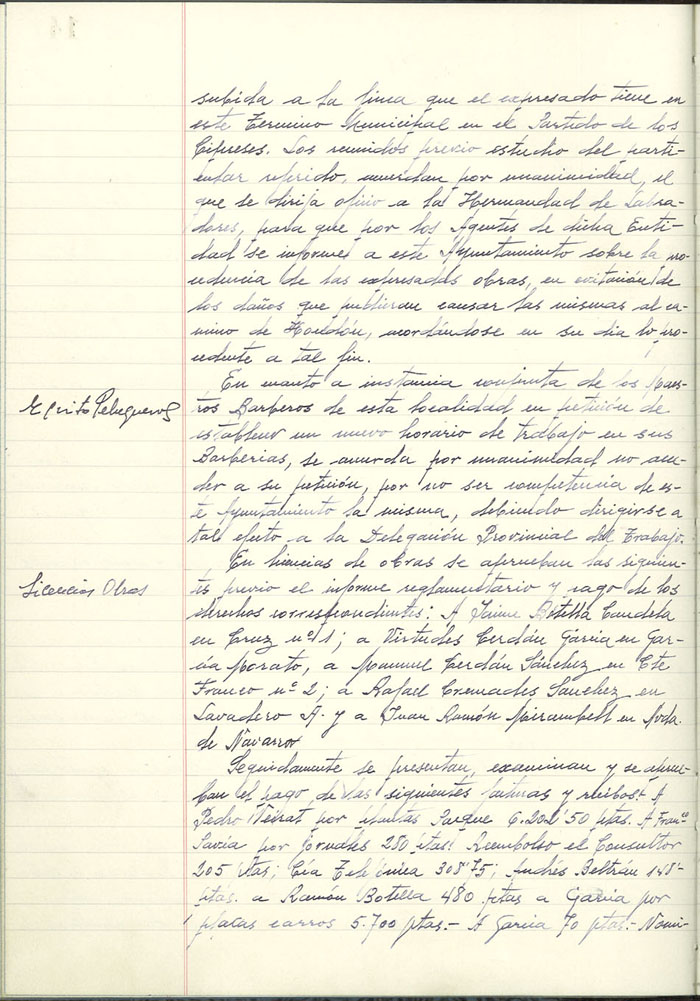 subida a la linea que el expresado tiene en
este Termino Municipal en el Partido de los
Cipreses. Los reunidos previo estudio del parti-
cular referido, acuerdan por unanimidad, el
que se dirija oficio a la Hermandad de Labra-
dores, para que por los Agentes de dicha Enti-
dad se informe a este Ayuntamiento sobre la pro-
cedencia de las expresadas obras, en evitación de
los daños que pudieran causar las mismas al ca-
mino de Hondón, acordándose en su dia lo pro-
cedente a tal fin.
Escrito Peluqueros
En cuanto a instancia conjunta de los Maes-
tros Barberos de esta localidad en petición de
establecer un nuevo horario de trabajo en sus
Barberias, se acuerda por unanimidad no acce-
der a su petición, por no ser competencia de es-
te Ayuntamiento la misma, debiendo dirigirse a
tal efecto a la Delegación Provincial del Trabajo.
Licencias Obras
En licencias de obras se aprueban las siguien-
tes previo el informe reglamentario y pago de los
derechos correspondientes: A Jaime Botella Candela
en Cruz nº 1; a Virtudes Cerdán Garcia en Gar-
cia Morato, a Manuel Cerdán Sánchez en Cte
Franco nº 2; a Rafael Cremades Sanchez en
Lavadero A. y a Juan Ramón Mirambell en Avda.
de Navarro
Seguidamente se presentan, examinan y se aprue-
ban el pago de las siguientes facturas y recibos: A
Pedro Veirat por plantas Parque 6.202'50 ptas. A Franco
Savia por jornales 280 ptas: Reembolso el Consultor
205 ptas; Cía Telefónica 308'75; Andrés Beltrán 148'-
ptas. a Ramón Botella 480 ptas a Garcia por
placas carros 5.700 ptas.- A Garcia 70 ptas.- Nomi-